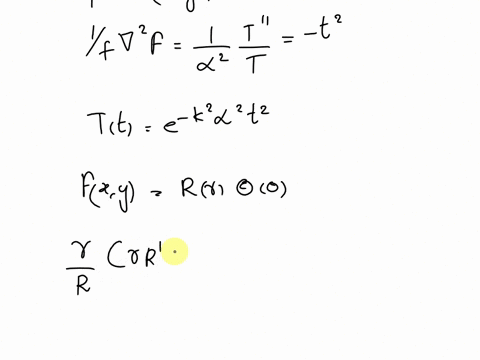 1/f ∇²F = 1/α² T''/T = -t²
T(t) = e^-k²α²t²
F(x,y) = R(r) Θ(θ)
r/R (rR'